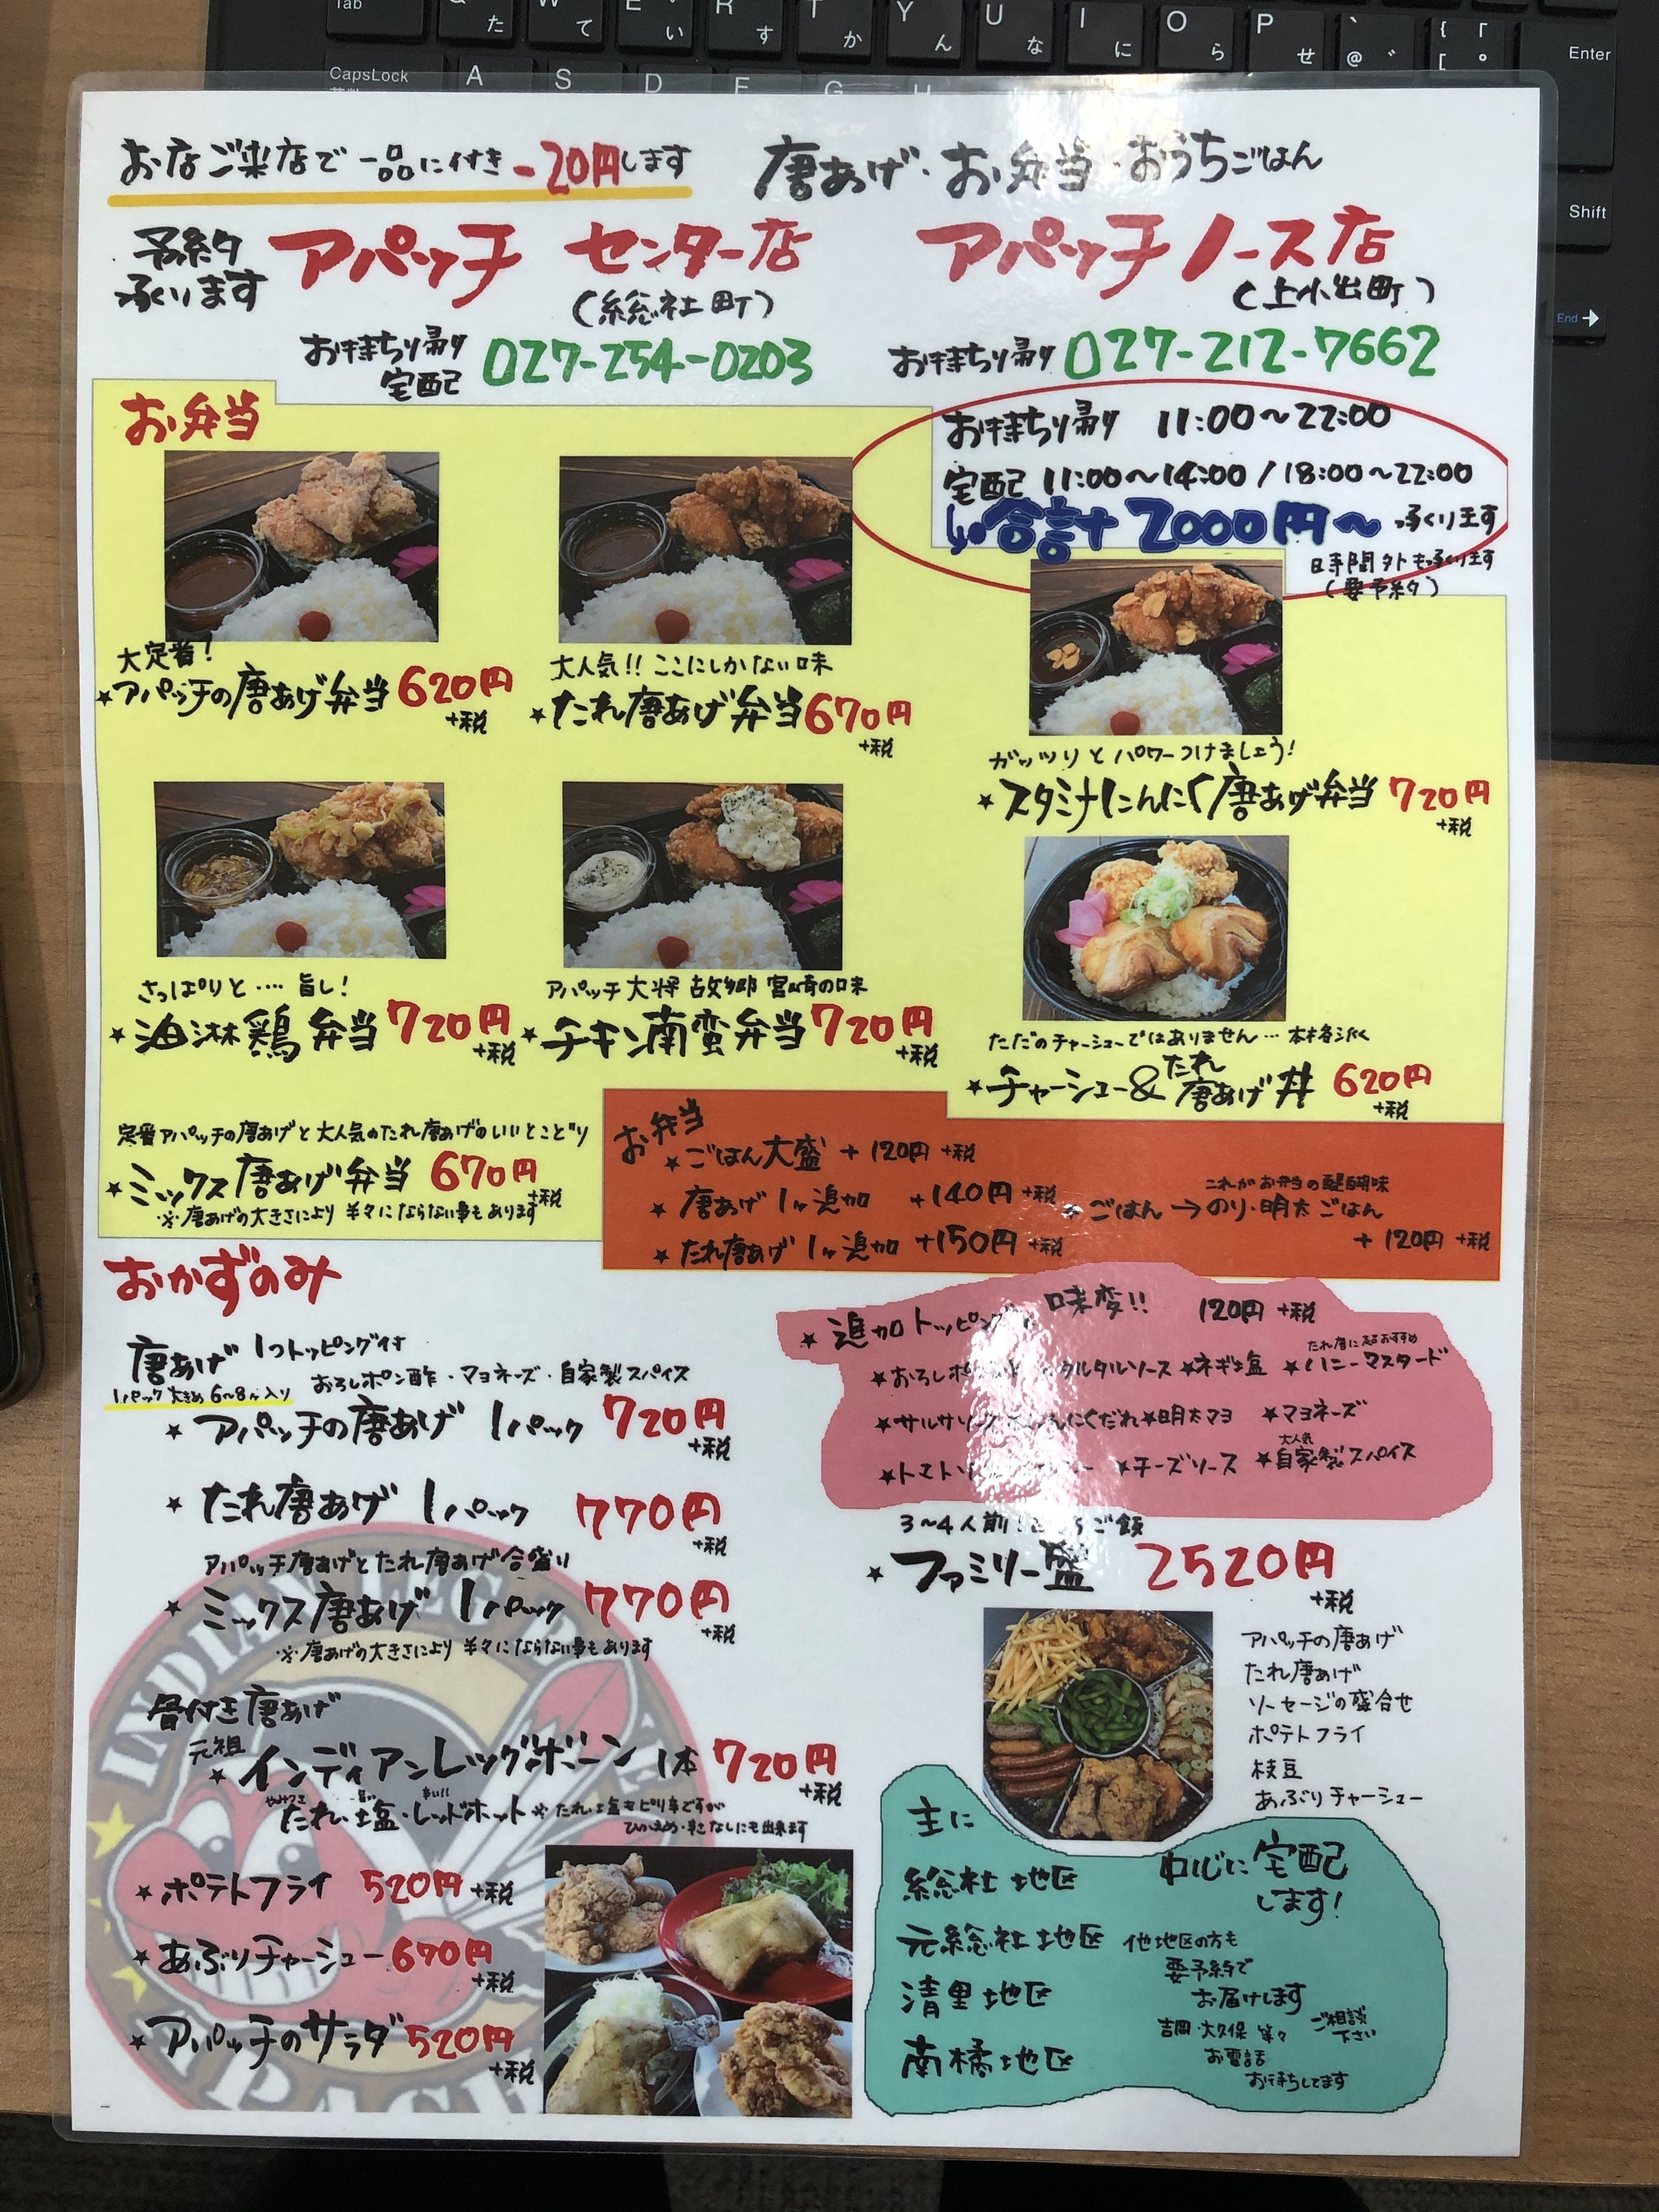 お店ご来店で一品に付き-20円します
唐あげ・お弁当・おうちごはん
予約
承ります
アパッチ センター店
(総社町)
お持ち帰り
宅配
027-254-0203
アパッチノース店
(上小出町)
お持ち帰り 027-212-7662
お持ち帰り 11:00～22:00
宅配 11:00～14:00/18:00～22:00
合計2000円～承ります
時間外も承ります
(要予約)
お弁当
大定番!
★アパッチの唐あげ弁当 620円
+税
大人気!!ここにしかない味
★たれ唐あげ弁当 670円
+税
ガッツリとパワーつけましょう!
★スタミナにんにく唐あげ弁当 720円
+税
さっぱりと‥‥旨し!
★油淋鶏弁当 720円
+税
アパッチ大将 故郷 宮崎の味
★チキン南蛮弁当 720円
+税
ただのチャーシューではありません…本格派
★チャーシュー&たれ唐あげ丼 620円
+税
定番アパッチの唐あげと大人気のたれ唐あげのいいとこどり
★ミックス唐あげ弁当 670円
+税
※唐あげの大きさにより半々にならない事もあります
お弁当
★ごはん大盛 +120円 +税
★唐あげ1ヶ追加 +140円 +税
★たれ唐あげ1ヶ追加 +150円 +税
これがお弁当の醍醐味
★ごはん→のり・明太ごはん
+120円 +税
おかずのみ
唐あげ 1つトッピング付
1パック大きめ6～8ヶ入り
おろしポン酢・マヨネーズ・自家製スパイス
★アパッチの唐あげ 1パック 720円
+税
★たれ唐あげ 1パック 770円
+税
アパッチ唐あげとたれ唐あげ合盛り
★ミックス唐あげ 1パック 770円
+税
※唐あげの大きさにより半々にならない事もあります
骨付き唐あげ
元祖
★インディアンレッグボーン 1本 720円
+税
たれ・塩・レッドホット ※たれ・塩もピリ辛ですが
ひかえめ・辛さなしにも出来ます
★ポテトフライ 520円 +税
★あぶりチャーシュー 670円
+税
★アパッチのサラダ 520円
+税
★追加トッピング 味変!! 120円 +税
★タルタルソース ★ネギ塩 ★ハニーマスタード
★明太マヨ ★マヨネーズ
大人気
★チーズソース ★自家製スパイス
3～4人前! ご飯
★ファミリー盛 2520円
+税
アパッチの唐あげ
たれ唐あげ
ソーセージの盛合せ
ポテトフライ
枝豆
あぶりチャーシュー
主に
総社地区
元総社地区
清里地区
南橘地区
中心に宅配
します!
他地区の方も
要予約で
お届けします
吉岡・大久保 等々
ご相談
下さい
お電話
お待ちしてます
Tab
Q た
W て
E い
R す
T か
Y ん
U な
I に
O ら
P せ
CapsLock
A
S
D
F
G
H
Enter
Shift
End